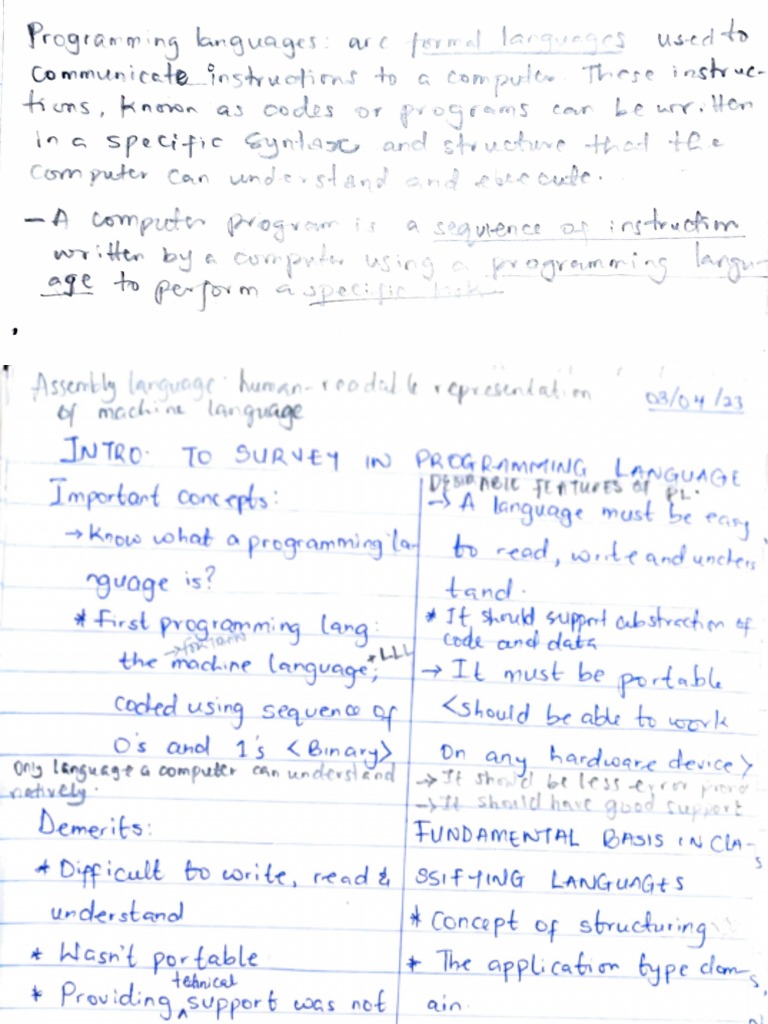 Programming languages: are formal languages used to
communicate instructions to a computer. These instruc-
tions, known as codes or programs can be written
in a specific syntax and structure that the
computer can understand and execute.
- A computer program is a sequence of instruction
written by a computer using a programming langu-
age to perform a specific task
Assembly language: human-readable representation
of machine language
03/04/23
INTRO. TO SURVEY IN PROGRAMMING LANGUAGE
Important concepts:
→ Know what a programming la-
nguage is?
* First programming lang:
the machine language; * LLL
coded using sequence of
0's and 1's <Binary>
Only language a computer can understand
natively.
Demerits:
* Difficult to write, read &
understand
* Wasn't portable
* Providing technical support was not
DESIRABLE FEATURES OF PL.
→ A language must be easy
to read, write and unders
tand.
* It should support abstraction of
code and data
→ It must be portable
<should be able to work
on any hardware device>
→ It should be less error prone
→ It should have good support
FUNDAMENTAL BASIS IN CLA-
SSIFYING LANGUAGES
* Concept of structuring
* The application type dom-
ain.